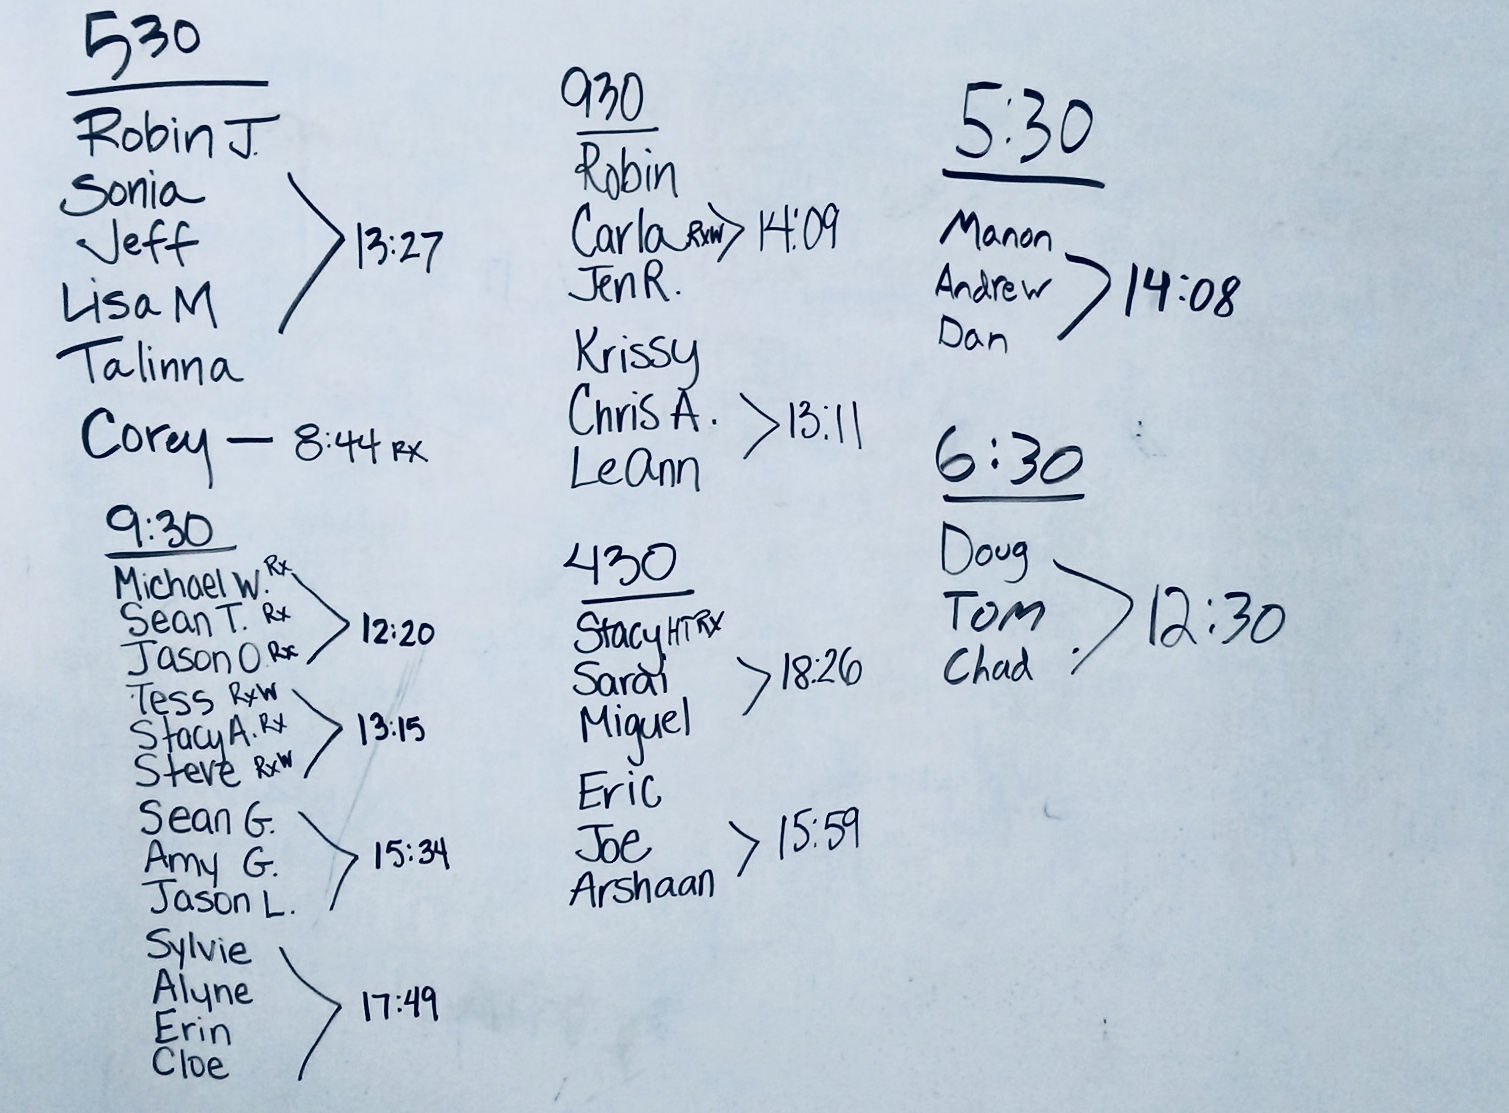 530
Robin J.
Sonia
Jeff
Lisa M
Talinna
13:27
Corey — 8:44 RX
9:30
Michael W. Rx
Sean T. Rx
Jason O. Rx
12:20
Tess RxW
Stacy A. Rx
Steve RxW
13:15
Sean G.
Amy G.
Jason L.
15:34
Sylvie
Alyne
Erin
Cloe
17:49
930
Robin
Carla RxW
Jen R.
14:09
Krissy
Chris A.
LeAnn
13:11
430
Stacy HT RX
Sarai
Miguel
18:26
Eric
Joe
Arshaan
15:59
5:30
Manon
Andrew
Dan
14:08
6:30
Doug
Tom
Chad
12:30